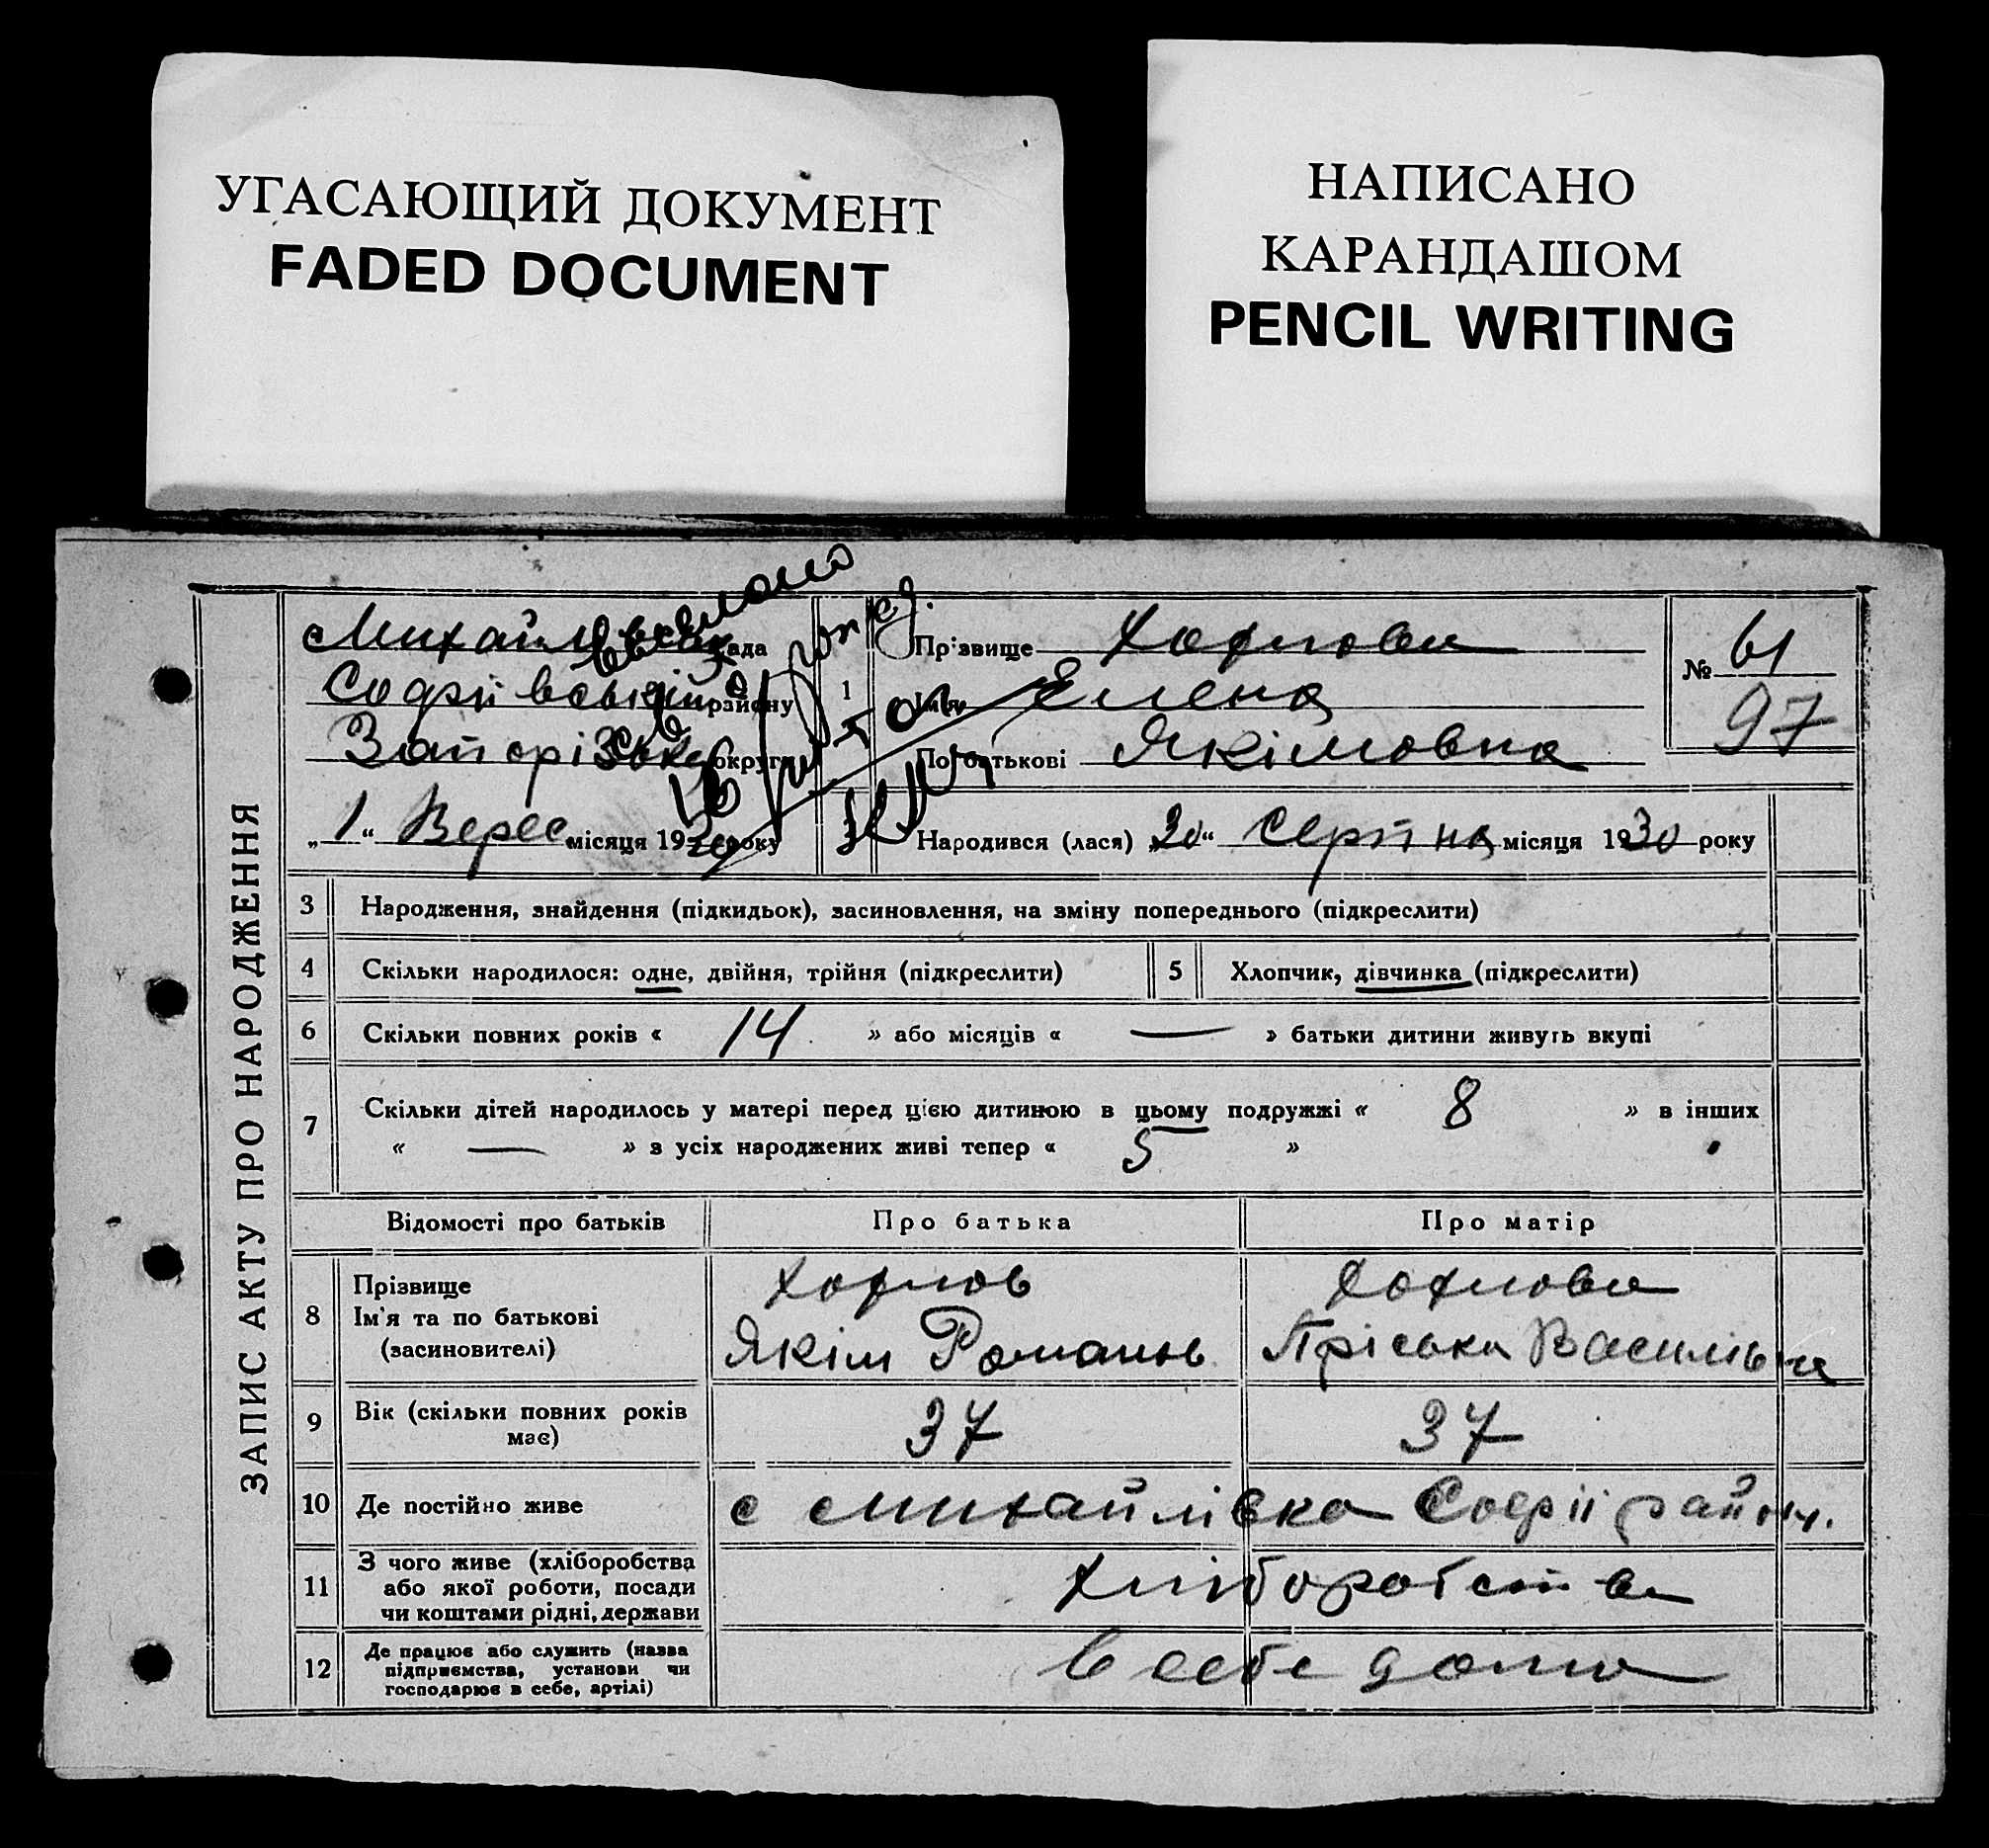 УГАСАЮЩИЙ ДОКУМЕНТ
FADED DOCUMENT
НАПИСАНО
КАРАНДАШОМ
PENCIL WRITING
ЗАПИС АКТУ ПРО НАРОДЖЕННЯ
Михайлівська рада
Софіївський району
Запорізької округи
„1“ Верес місяця 1930 року
1 Прізвище Хохлова
Ім'я Елена
По батькові Якімовна
№ 61
97
Народився (лася) „20“ Серпня місяця 1930 року
3 Народження, знайдення (підкидьок), засиновлення, на зміну попереднього (підкреслити)
4 Скільки народилося: одне, двійня, трійня (підкреслити) 5 Хлопчик, дівчинка (підкреслити)
6 Скільки повних років « 14 » або місяців « — » батьки дитини живуть вкупі
7 Скільки дітей народилось у матері перед цією дитиною в цьому подружжі « 8 » в інших
« — » з усіх народжених живі тепер « 5 »
Відомості про батьків Про батька Про матір
8 Прізвище Хохлов Хохлова
Ім'я та по батькові
(засиновителі) Якім Романов Пріська Василівна
9 Вік (скільки повних років має) 37 37
10 Де постійно живе с Михайлівка Софії район.
11 З чого живе (хліборобства
або якої роботи, посади
чи коштами рідні, держави Хліборобства
12 Де працює або служить (назва
підприємства, установи чи
господарює в себе, артілі) в себе дома